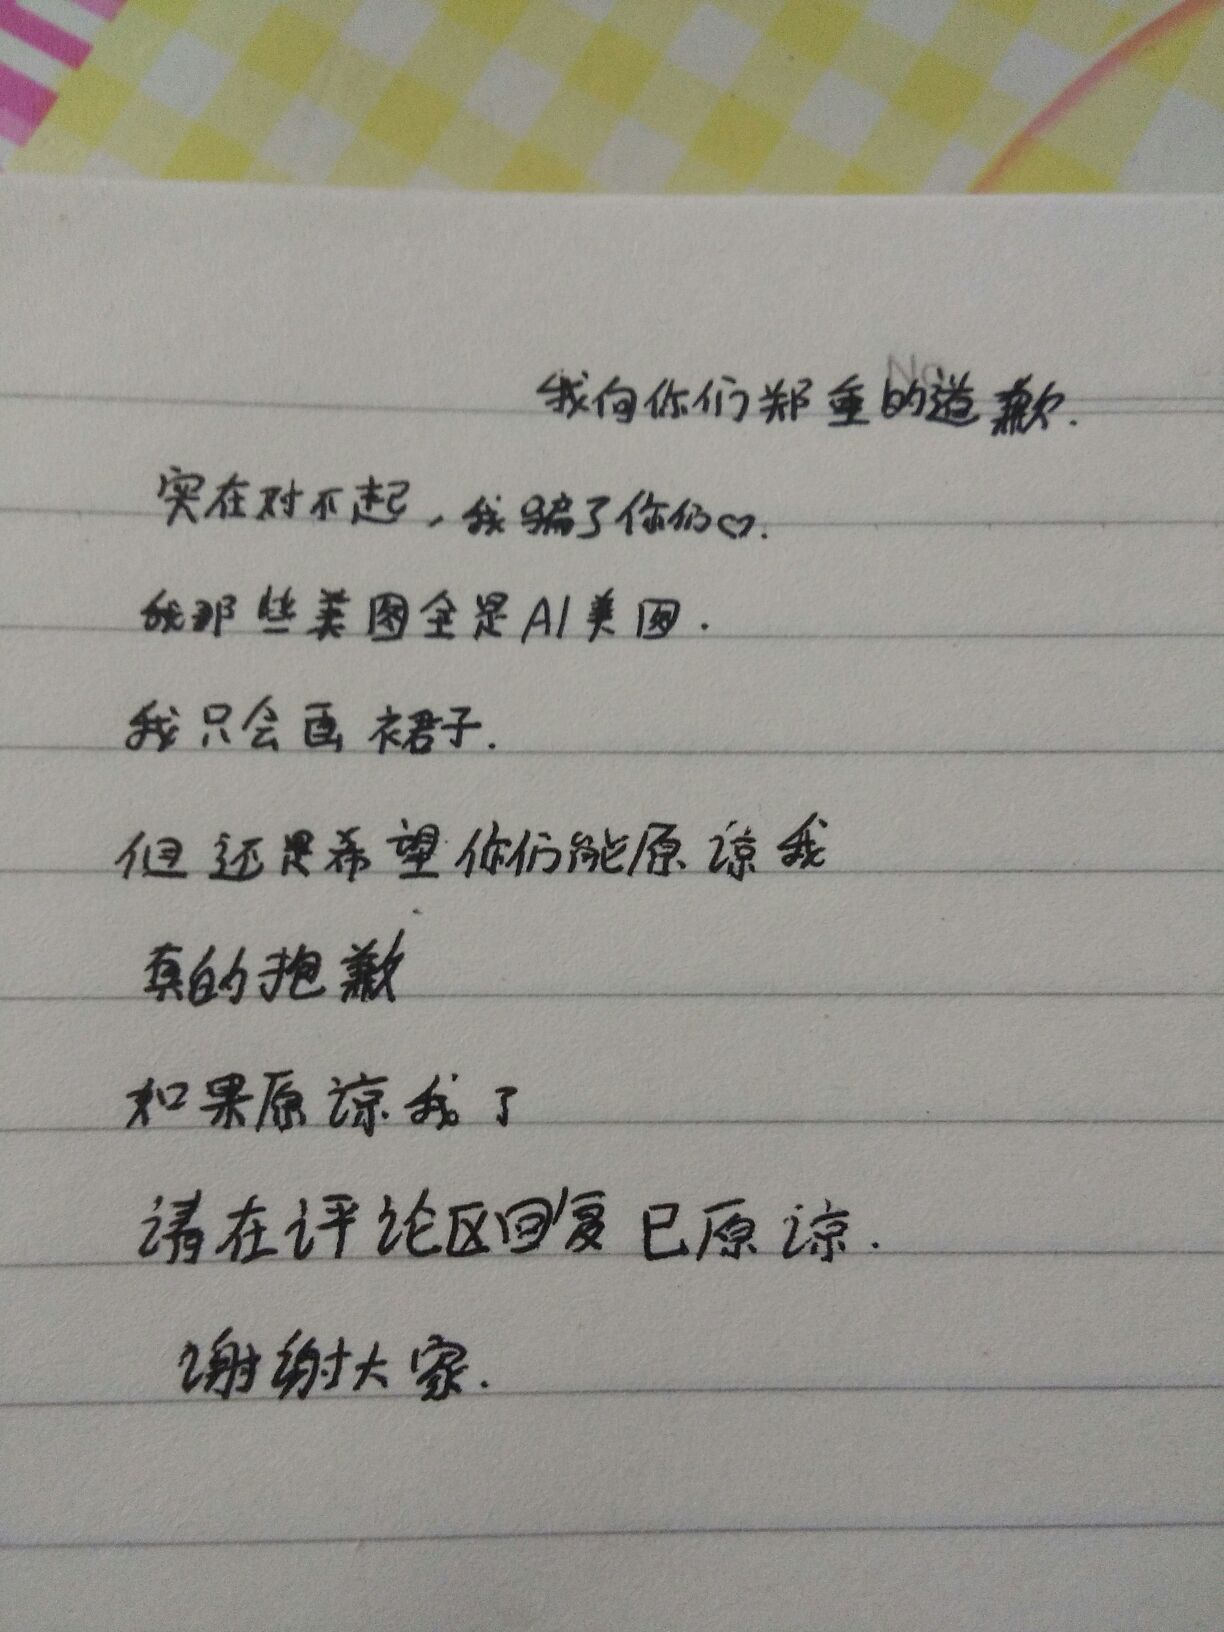 No
我向你们郑重的道歉.
实在对不起,我骗了你们♡.
我那些美图全是AI美图.
我只会画裙子.
但还是希望你们能原谅我
真的抱歉
如果原谅我了
请在评论区回复已原谅.
谢谢大家.